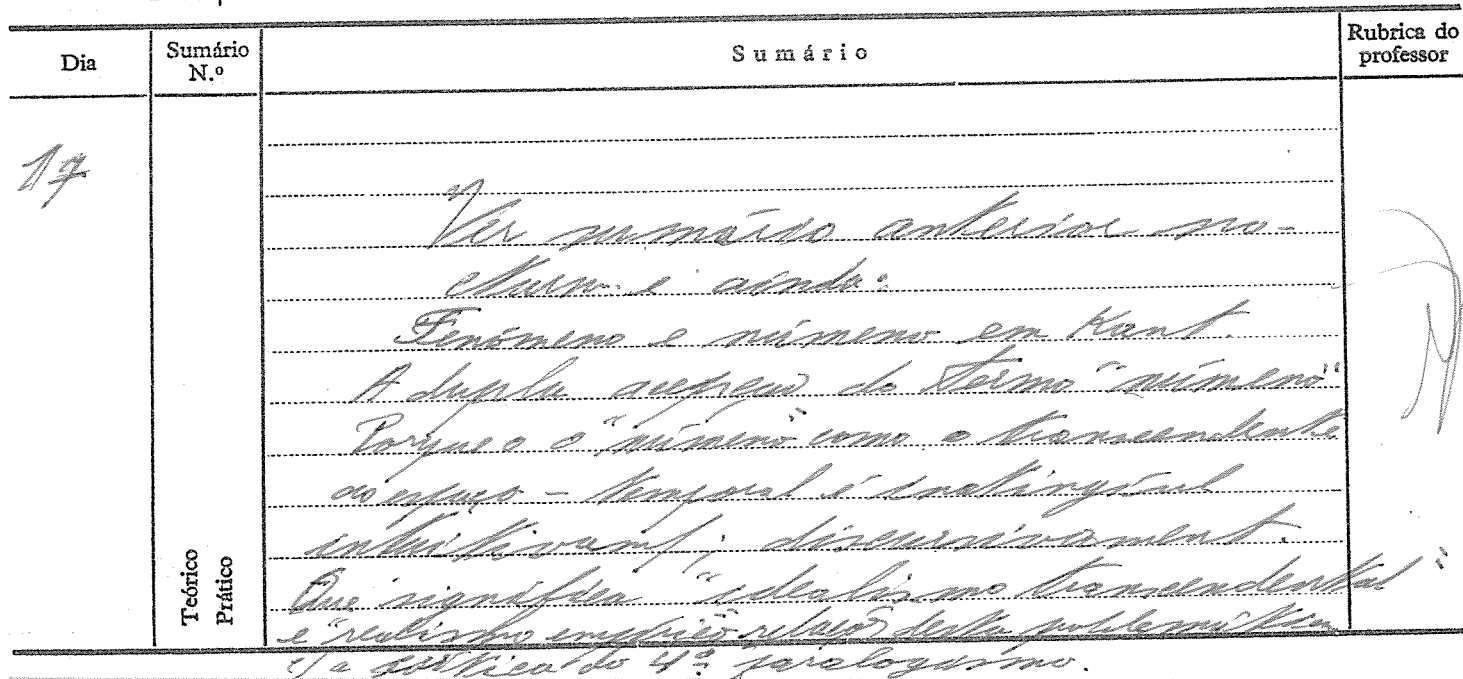 Dia
Sumário N.º
Sumário
Rubrica do professor
17
Teórico
Prático
Ver sumário anterior no-
cturno e ainda:
Fenómeno e númeno em Kant.
A dupla acepção do termo "númeno"
Porque o "númeno" como o transcendente
ao espaço-temporal é inatingível
intuitivam/; discursivament.
Que significa "idealismo transcendental"
e "realismo empírico" relação desta problemática
c/ a crítica do 4º paralogismo.